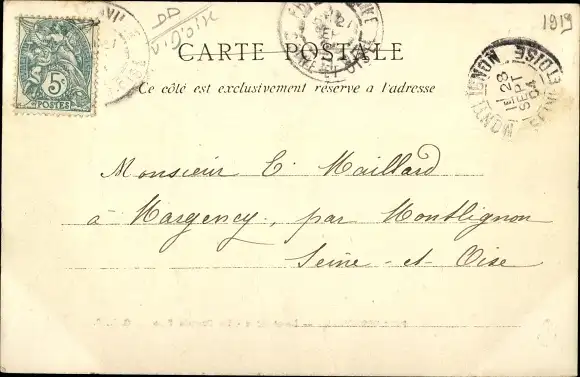 DD
V. d'oise
1919
5c
POSTES
CARTE POSTALE
Ce côté est exclusivement réservé à l'adresse
MONTLIGNON
SEINE ET OISE
28
SEPT
04
Monsieur E. Maillard
à Margency, par Montlignon
Seine-et-Oise